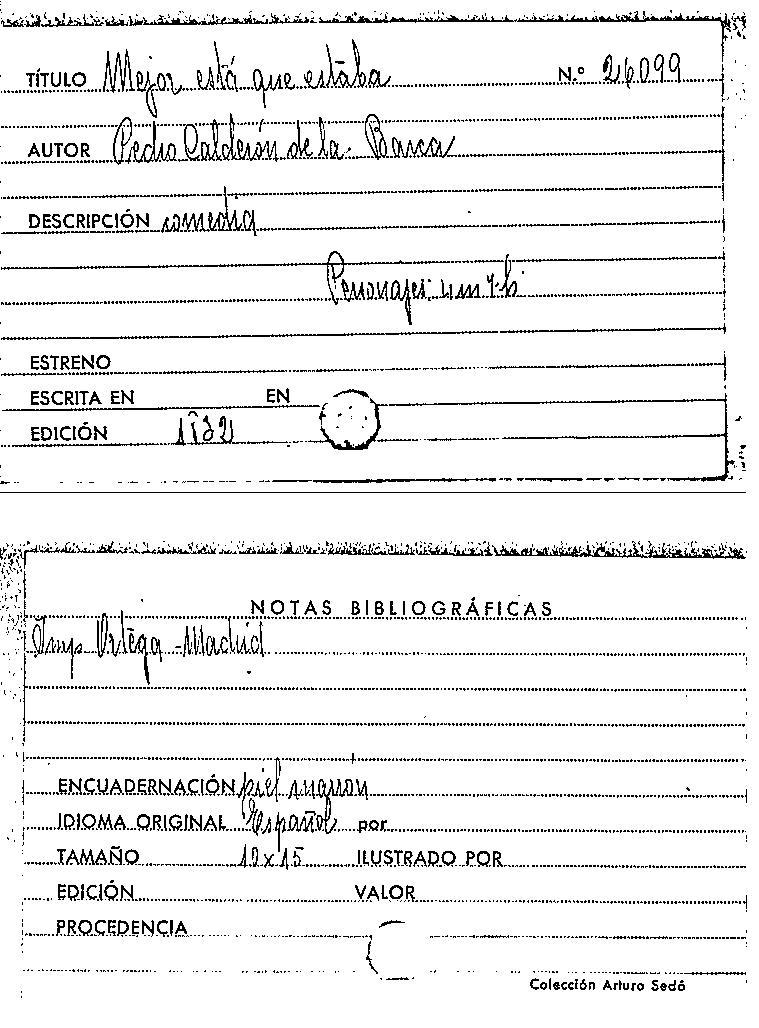 TÍTULO Mejor está que estaba N.º 26099
AUTOR Pedro Calderón de la Barca
DESCRIPCIÓN comedia
Personajes: 4m 7h
ESTRENO
ESCRITA EN EN
EDICIÓN
NOTAS BIBLIOGRÁFICAS
Imp. Ortega - Madrid
ENCUADERNACIÓN piel marron
IDIOMA ORIGINAL Español por
TAMAÑO 10x15 ILUSTRADO POR
EDICIÓN VALOR
PROCEDENCIA
Colección Arturo Sedó